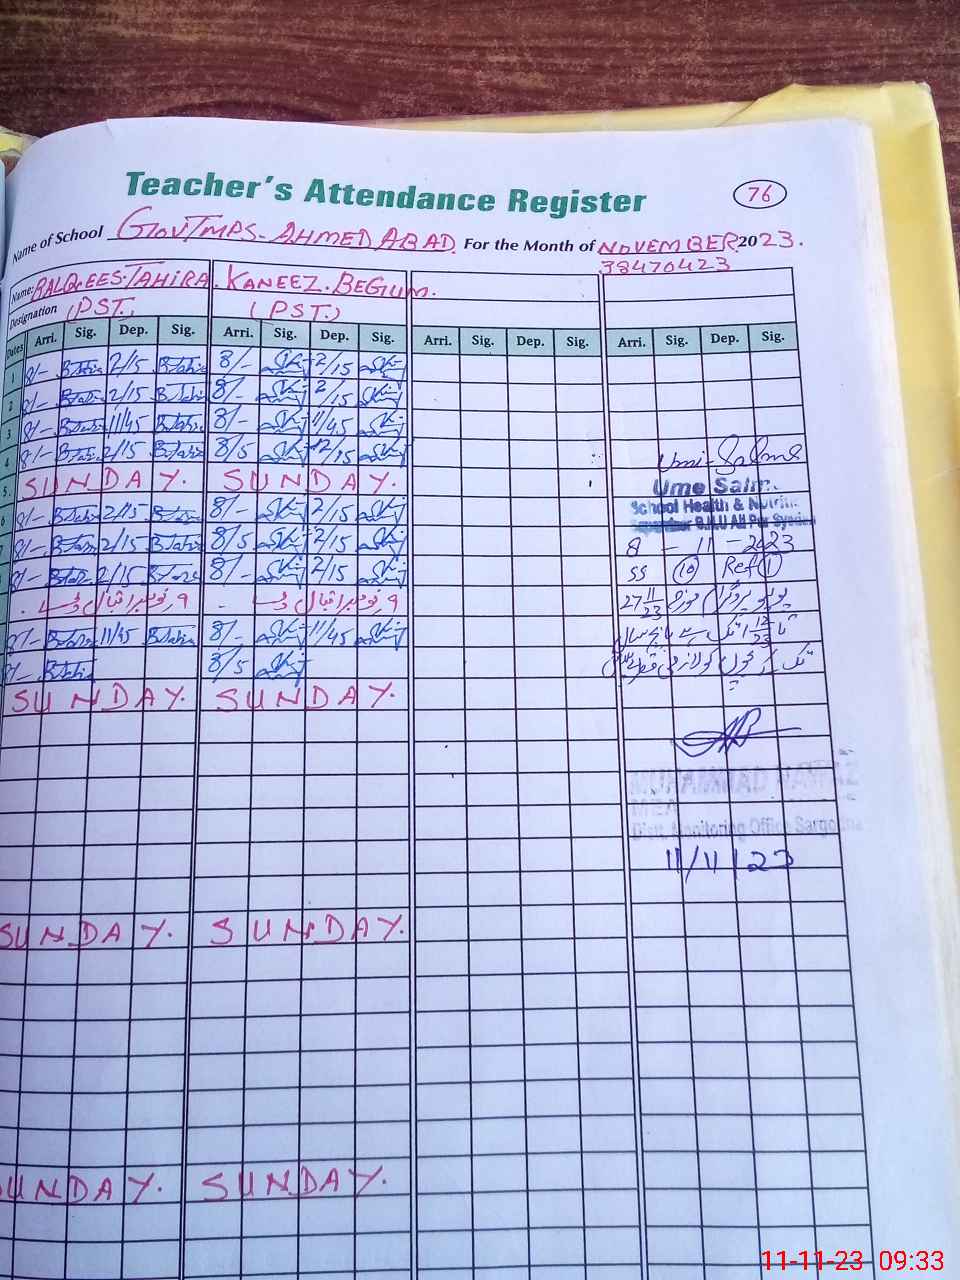 Teacher's Attendance Register 76
Name of School GOVT MPS- AHMED ABAD. For the Month of NOVEMBER 2023.
38470423
Name: BALQEES TAHIRA. KANEEZ. BEGUM.
Designation (PST.) (PST.)
Dates Arri. Sig. Dep. Sig. Arri. Sig. Dep. Sig. Arri. Sig. Dep. Sig. Arri. Sig. Dep. Sig.
1 8/- B.Tahira 2/15 B.Tahira 8/- 2/15
2 8/- B.Tahira 2/15 B.Tahira 8/- 2/15
3 8/- B.Tahira 11/45 B.Tahira 8/- 11/45
4 8/- B.Tahira 2/15 B.Tahira 8/5 12/15 Umi-Salma
5. SUNDAY. SUNDAY. Ume Salm
6 8/- B.Tahira 2/15 B.Tahira 8/- 2/15 School Health & Nutri
7 8/- B.Tahira 2/15 B.Tahira 8/5 2/15 8 - 11 - 2023
8/- B.Tahira 2/15 B.Tahira 8/- 2/15 SS 10 Ref 1
۹ نومبر اقبال ڈے ۹ نومبر اقبال ڈے 27 11/23
8/- B.Tahira 11/45 B.Tahira 8/- 11/45 تا 12/23
8/- B.Tahira 8/5
SUNDAY. SUNDAY.
MUHAMMAD
MEA
Distt. Monitoring Office Sargodha
11/11/23
SUNDAY. SUNDAY.
SUNDAY. SUNDAY.
11-11-23 09:33